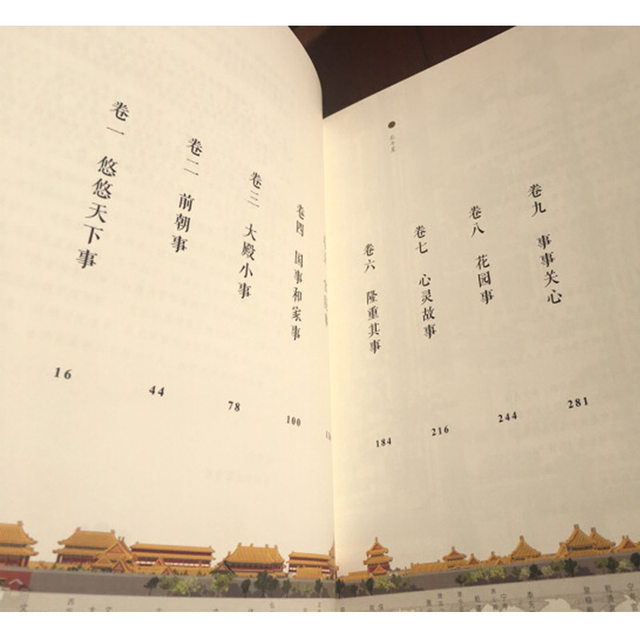 卷一 悠悠天下事
16
卷二 前朝事
44
卷三 大殿小事
78
卷四 国事和家事
100
卷六 隆重其事
184
卷七 心灵故事
216
卷八 花园事
244
卷九 事事关心
281